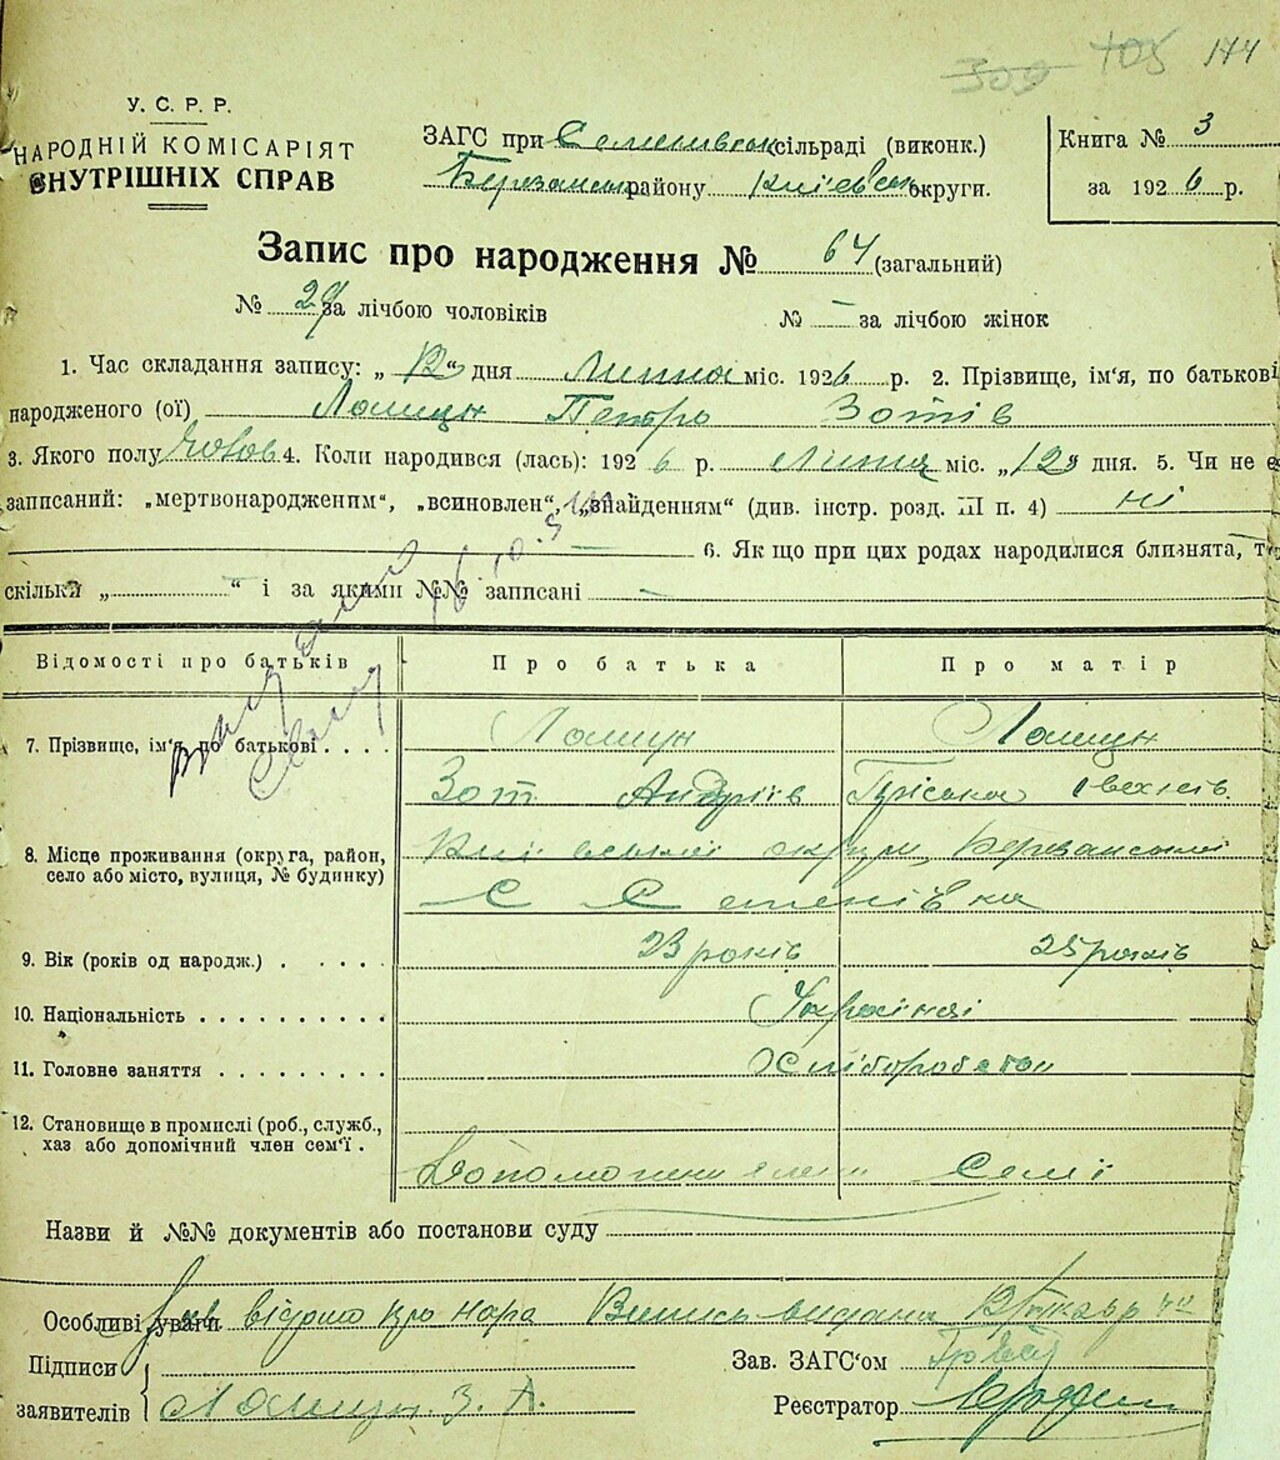 309 105 144
У. С. Р. Р.
НАРОДНІЙ КОМІСАРІЯТ
ВНУТРІШНІХ СПРАВ
ЗАГС при Семенівськ сільраді (виконк.)
Березанськ району Київськ округи.
Книга № 3
за 1926 р.
Запис про народження № 64 (загальний)
№ 29 за лічбою чоловіків
№ — за лічбою жінок
1. Час складання запису: „12“ дня Липня міс. 1926 р. 2. Прізвище, ім‘я, по батькові
народженого (ої) Лошун Петро Зотів
3. Якого полу Чолов 4. Коли народився (лась): 1926 р. Липня міс. „12„ дня. 5. Чи не є
записаний: „мертвонародженим“, „всиновлен“, „знайденням“ (див. інстр. розд. III п. 4) ні
6. Як що при цих родах народилися близнята, то
скільки „ — “ і за якими №№ записані —
Відомості про батьків
Про батька
Про матір
7. Прізвище, ім‘я, по батькові . . . .
Лошун Лошун
Зот Андріїв Пріська
8. Місце проживання (округа, район,
село або місто, вулиця, № будинку)
Київської округи, Березанської
с Семенівка
9. Вік (років од народж.) . . . . .
23 років 25 років
10. Національність . . . . . . . . . .
Українці
11. Головне заняття . . . . . . . . .
Хліборобство
12. Становище в промислі (роб., служб.,
хаз або допомічний член сем‘ї .
Допоможени члени Семї
Назви й №№ документів або постанови суду
Особливі уваги відома про нара Випись видана
Підписи
заявителів
Лошун. З. А.
Зав. ЗАГС‘ом
Реєстратор